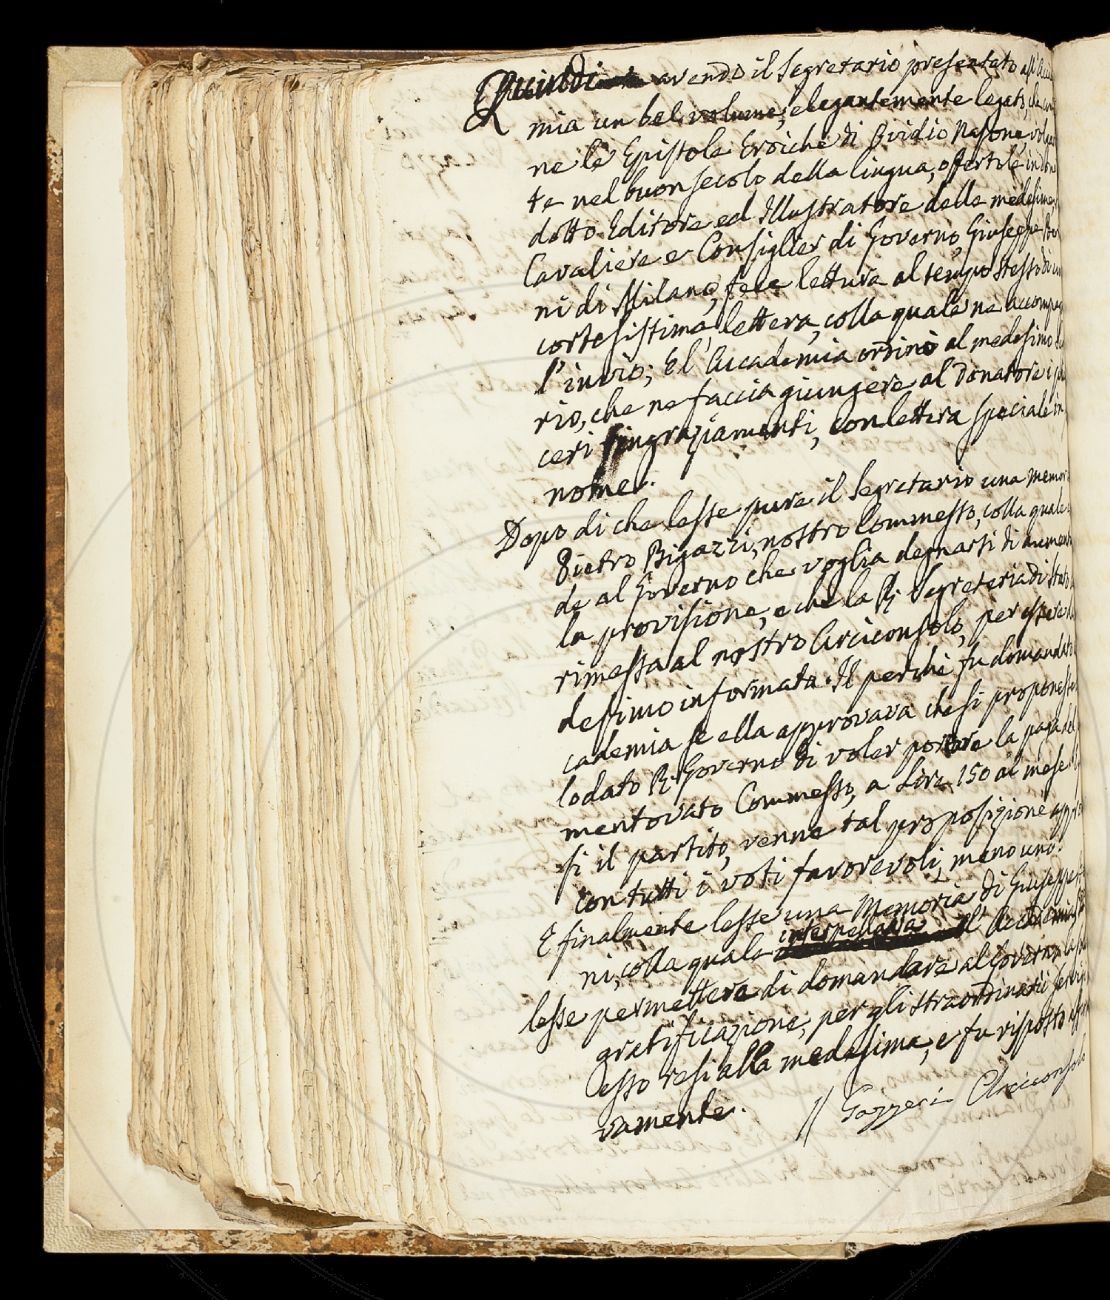 Quindi avendo il Segretario presentato all'Acca
mia un bel volume, elegantemente legato,
ne le Epistole Eroiche di Ovidio Nasone vol
te nel buon secolo della lingua, offertole in
dotto Editore ed Illustratore delle medesime,
Cavaliere e Consiglier di Governo, Giuseppe
ni di Milano, fece lettura al tempo stesso di
cortesissima lettera, colla quale ne accompa
l'invio; E l'Accademia ordinò al medesimo
rio, che ne faccia giungere al Donatore i
ceri ringraziamenti, con lettera speciale in
nome.
Dopo di che lesse pure il Segretario una Memor
Pietro Bigazzi, nostro Commesso, colla quale
de al Governo che voglia degnarsi di aument
la provisione, e che la R. Segreteria di Stato
rimessa al nostro Arciconsolo, per essere
desimo informata. Il perchè fu domandato
cademia se ella approvava che si propones
lodato R. Governo di voler portare la paga del
mentovato Commesso, a Lire 150 al mese.
si il partito, venne tal proposizione app
con tutti i voti favorevoli, meno uno.
E finalmente lesse una Memoria di Giuseppe
ni, colla quale interpellava l'Accademia
lesse permettere di domandare al Governo
gratificazione, per gli straordinarj
esso resi alla medesima, e fu risposto
vamente.
Gazzeri Arciconsolo